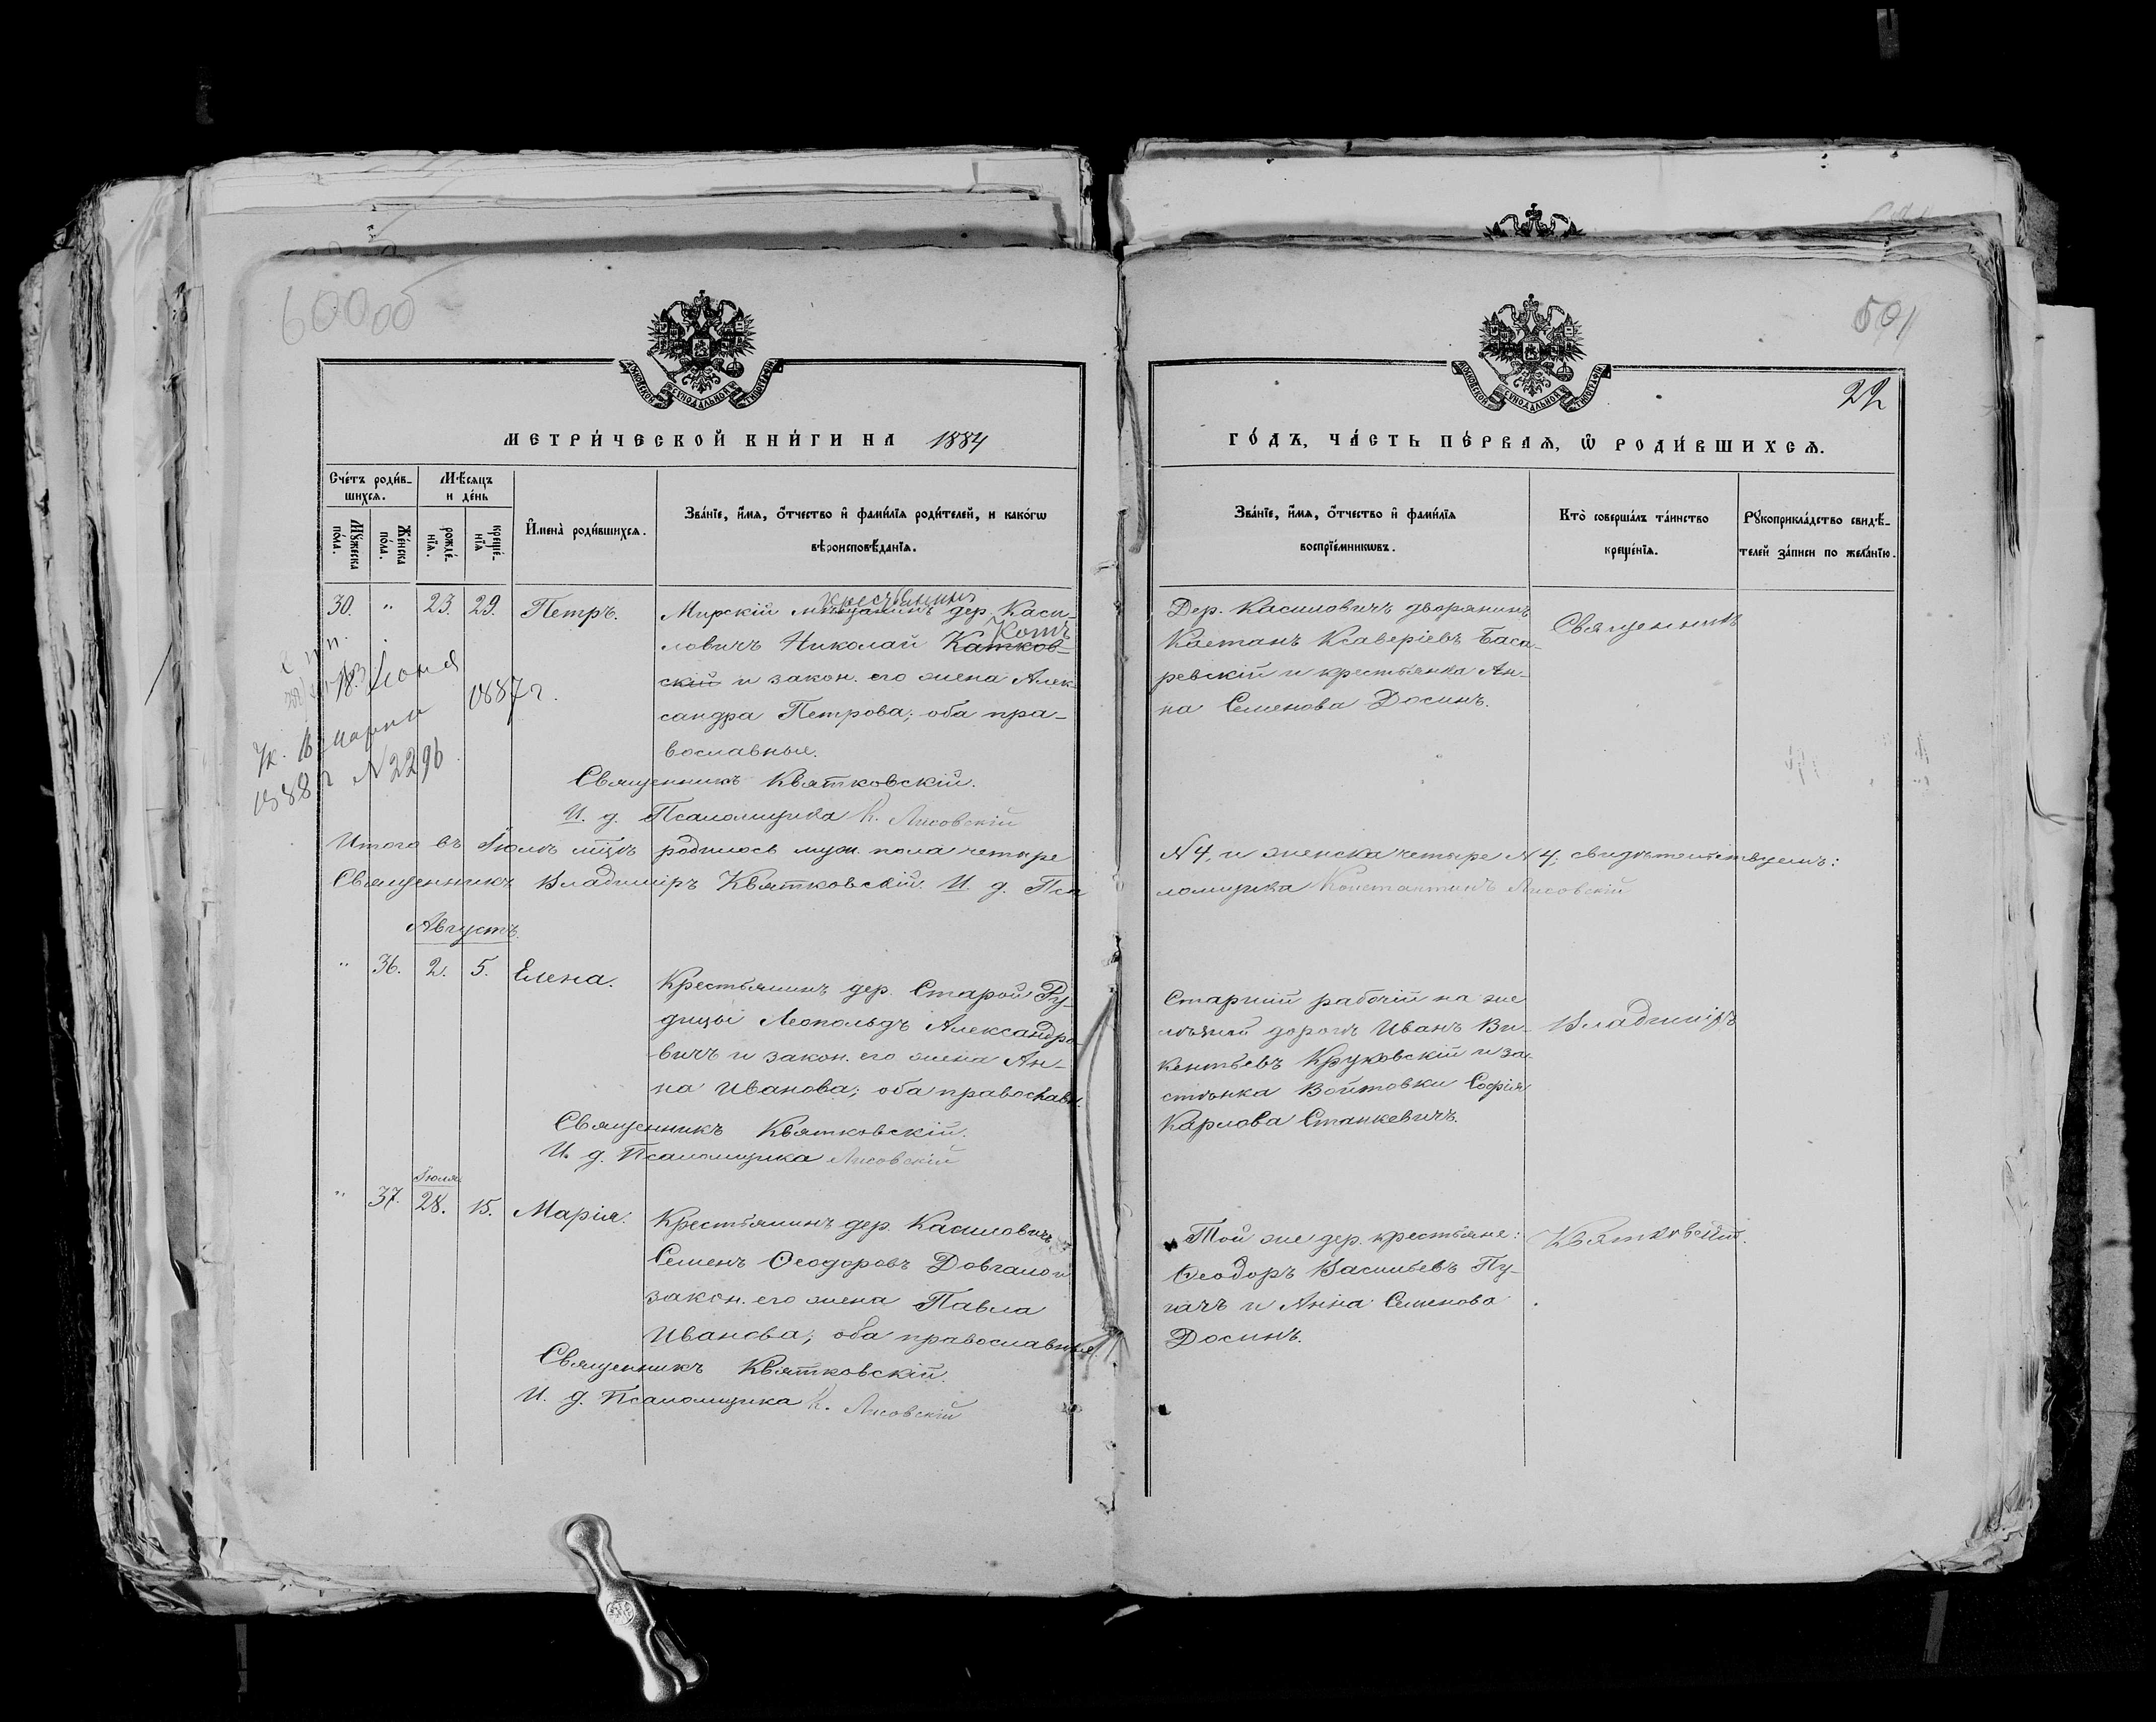 60000
501
22
МОСКОВСКОЙ СѴНОДАЛЬНОЙ ТИПОГРАФІИ
МОСКОВСКОЙ СѴНОДАЛЬНОЙ ТИПОГРАФІИ
МЕТРИ́ЧЕСКОЙ КНИ́ГИ НА 1884
ГО́ДЪ, ЧА́СТЬ ПЕ́РВАѦ, Ѿ РОДИ́ВШИХСѦ.
Сче́тъ роди́в-
шихсѧ.
Мѣ́сѧцъ
и де́нь
Мꙋ́жеска
по́ла.
Же́нска
по́ла.
рожде́-
нїѧ.
креще́-
нїѧ
И҆мена̀ роди́вшихсѧ.
Зва́нїе, и҆́мѧ, ѻ҆́тчество и҆ фами́лїѧ роди́телей, и како́гѡ
вѣроисповѣ́данїѧ.
Зва́нїе, и҆́мѧ, ѻ҆́тчество и҆ фами́лїѧ
воспрїе́мникѡвъ.
Кто̀ соверша́лъ та́инство
креще́нїѧ.
Рꙋкоприкла́дство свидѣ́-
телей за́писи по жела́нїю.
30. " 23. 29. Петръ.
крестьянинъ
Мирскій мѣщанинъ дер. Каси-
Котъ
ловичъ Николай Катков-
скій и закон. его жена Алек-
сандра Петрова; оба пра-
вославные.
Священникъ Квятковскій.
И. д. Псаломщика К. Лисовскій
18 Іюня
1887 г.
Ук. 16 марта
1888 г № 2296
Дер. Касиловичъ дворянинъ
Каетанъ Ксаверіевъ Баса-
ревскій и крестьянка Ан-
на Семенова Досинъ.
Священникъ
Итого въ Іюлѣ мцѣ родилось муж. пола четыре
№ 4, и женска четыре № 4; свидѣтельствуемъ:
Священникъ Владиміръ Квятковскій. И. д. Пса
ломщика Константинъ Лисовскій
Августъ.
" 36. 2. 5. Елена.
Крестьянинъ дер. Старой Ру-
дицы Леопольдъ Александро-
вичъ и закон. его жена Ан-
на Иванова; оба православн.
Священникъ Квятковскій.
И. д. Псаломщика Лисовскій
Старшій рабочій на же
лѣзной дорогѣ Иванъ Ви-
кентьевъ Круковскій и за-
стѣнка Войтовки Софія
Карлова Станкевичъ.
Владиміръ
Іюля
" 37. 28. 15. Марія.
Крестьянинъ дер. Касиловичъ
Семенъ Ѳеодоровъ Довгало и
закон. его жена Павла
Иванова; оба православные.
Священникъ Квятковскій.
И. д. Псаломщика К. Лисовскій
Той же дер. крестьяне:
Ѳеодоръ Васильевъ Пу-
гачъ и Анна Семенова
Досинъ.
Квятковскій.